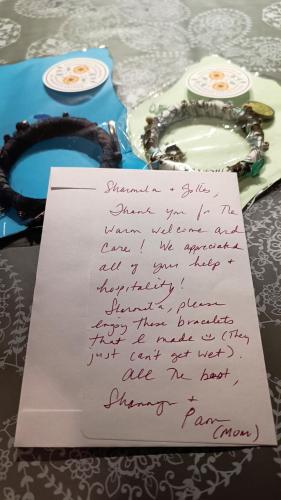 Sharmila + Gilles,
Thank you for the
warm welcome and
care! We appreciated
all of your help +
hospitality!
Sharmila, please
enjoy these bracelets
that I made ☺ (They
just can't get wet).
All the best,
Shannyn +
Pam
(Mom)